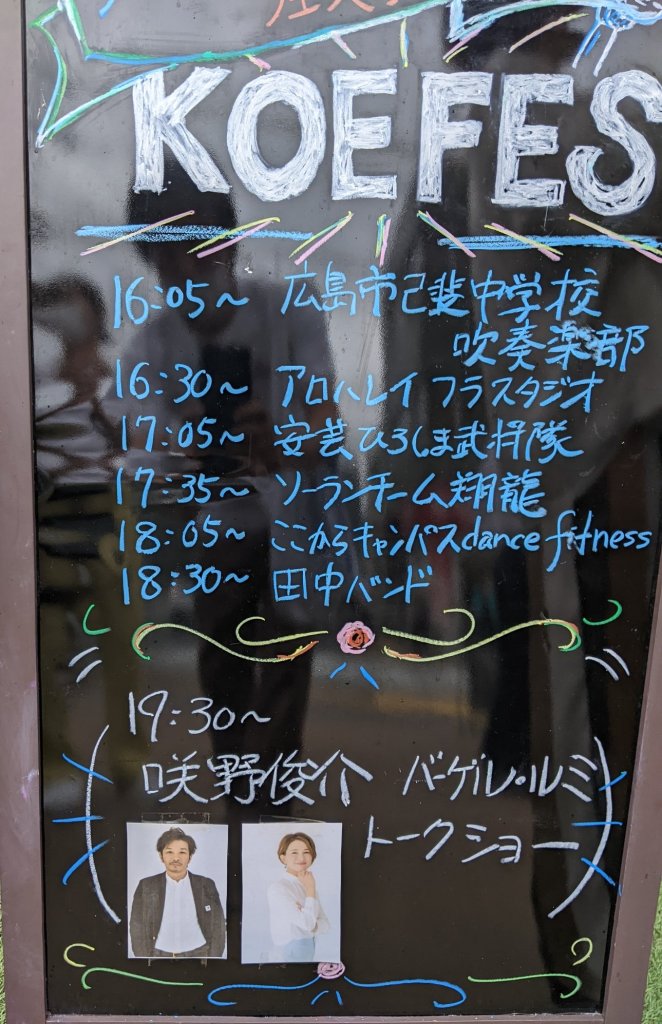 KOEFES
16:05〜 広島市己斐中学校
吹奏楽部
16:30〜 アロハレイ フラスタジオ
17:05〜 安芸ひろしま武将隊
17:35〜 ソーランチーム翔龍
18:05〜 ここからキャンパスdance fitness
18:30〜 田中バンド
19:30〜
咲野俊介 バーゲル・ルミ
トークショー